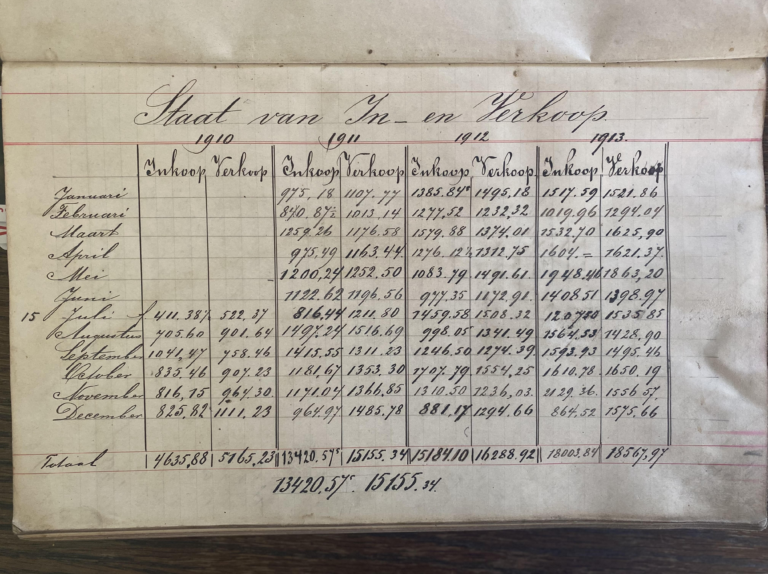 Staat van In- en Verkoop.
1910 1911 1912 1913.
Inkoop Verkoop Inkoop Verkoop Inkoop Verkoop Inkoop Verkoop
Januari 975,18 1107.77 1385.84⁵ 1495.18 1517.59 1521.86
Februari 840.87½ 1013.14 1277,52 1232,32 1019.96 1294.04
Maart 1259,26 1176.58 1579.88 1374.01 1532,70 1625,90
April 975.49 1163.44 1276.12½ 1312.75 1604.= 1621.37.
Mei 1200,24 1252.50 1083.79 1491.61. 1948.46 1863,20
Juni 1122.62 1196.56 977.35 1172.91 1408.51 1398.97
15 Juli 411.38⁵ 522.37 816,44 1211.80 1459.58 1508.32 1535.85
Augustus 705.60 901.64 1497.24 1516.69 998.05 1341.49 1564.53 1428.90
September 1041,47 758.46 1415.55 1311.23 1246.50 1274.39 1593.93 1495.46
October 835.46 907.23 1181,67 1353.30 1707.79 1554.25 1610.78 1650.19
November 816,75 964.30 1171.04 1366,85 1310.50 1236,03. 2129.36. 1556.57.
December 825,82 1111.23 964.97 1485.78 881.17 1294.66 864.52 1575.66
Totaal 4635,88 5165,23 13420.57⁵ 15155.34 15184.10 16288.92 18003.84 18567.97
13420.57⁵. 15155.34.